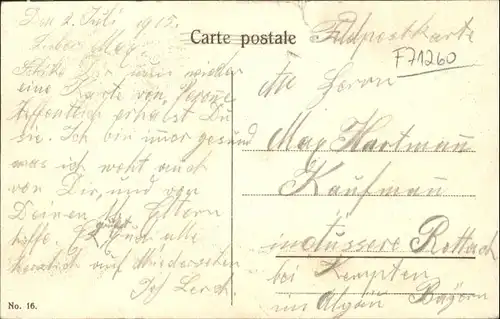 Den 2. Juli 1915.
Lieber Max.
Schike Dir nun wieder
eine Karte von Perone
hoffentlich erhälst Du
sie. Ich bin imer gesund
was ich wohl auch
von Dir, und von
Deinen Eltern
hoffe. alle
herzlich auf Wiedersehen
Jos Lerch
No. 16.
Carte postale
Feldpostkarte
F71260
An Herrn
Max Hartmann
Kaufmann
in Äussere Rottach
bei Kempten
im Algäu Bayern